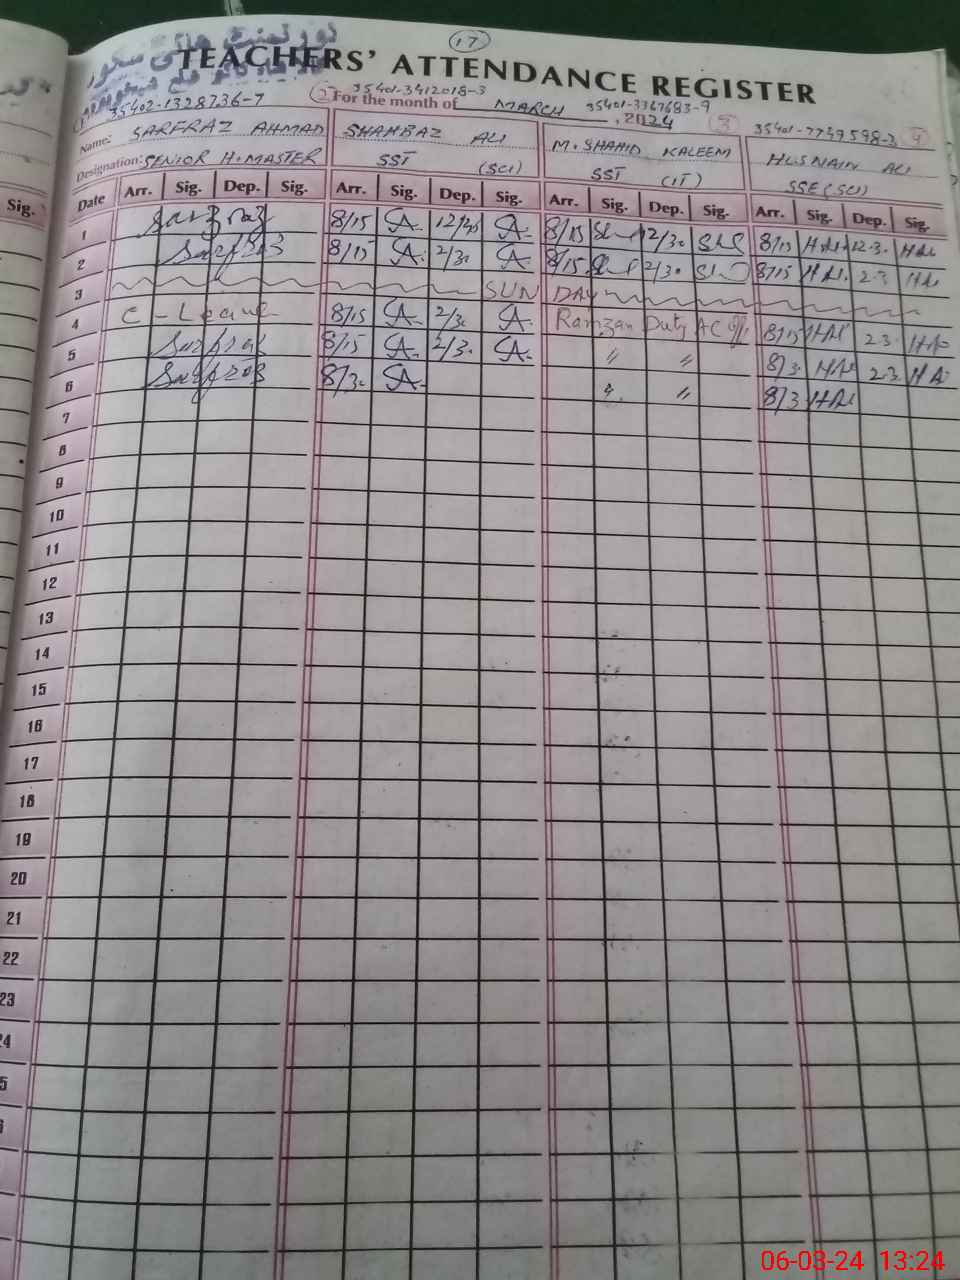 17
TEACHERS' ATTENDANCE REGISTER
35402-1328736-7 2 35401-3412018-3 35401-3367683-9 3 35401-7739598-3 4
For the month of MARCH, 2024
Name: SARFRAZ AHMAD SHAHBAZ ALI M. SHAHID KALEEM HUSNAIN ALI
Designation: SENIOR H.MASTER SST (SCI) SST (IT) SSE (SCI)
Date Arr. Sig. Dep. Sig. Arr. Sig. Dep. Sig. Arr. Sig. Dep. Sig. Arr. Sig. Dep. Sig.
1 Sarfraz 8/15 SA. SA. 8/15 12/30 8/15 12.3.
2 Sarfraz 8/15 SA. 2/30 SA. 8/15 2/30 8/15 2.3
3 SUN DAY
4 C-Leave 8/15 SA. 2/30 SA. Ramzan Duty AC Off 8/15 2.3.
5 Sarfraz 8/15 SA. 2/30 SA. " " 8/3. 2.3.
6 Sarfraz 8/30 SA. " " 8/3
7
8
9
10
11
12
13
14
15
16
17
18
19
20
21
22
23
24
Sig.
06-03-24 13:24